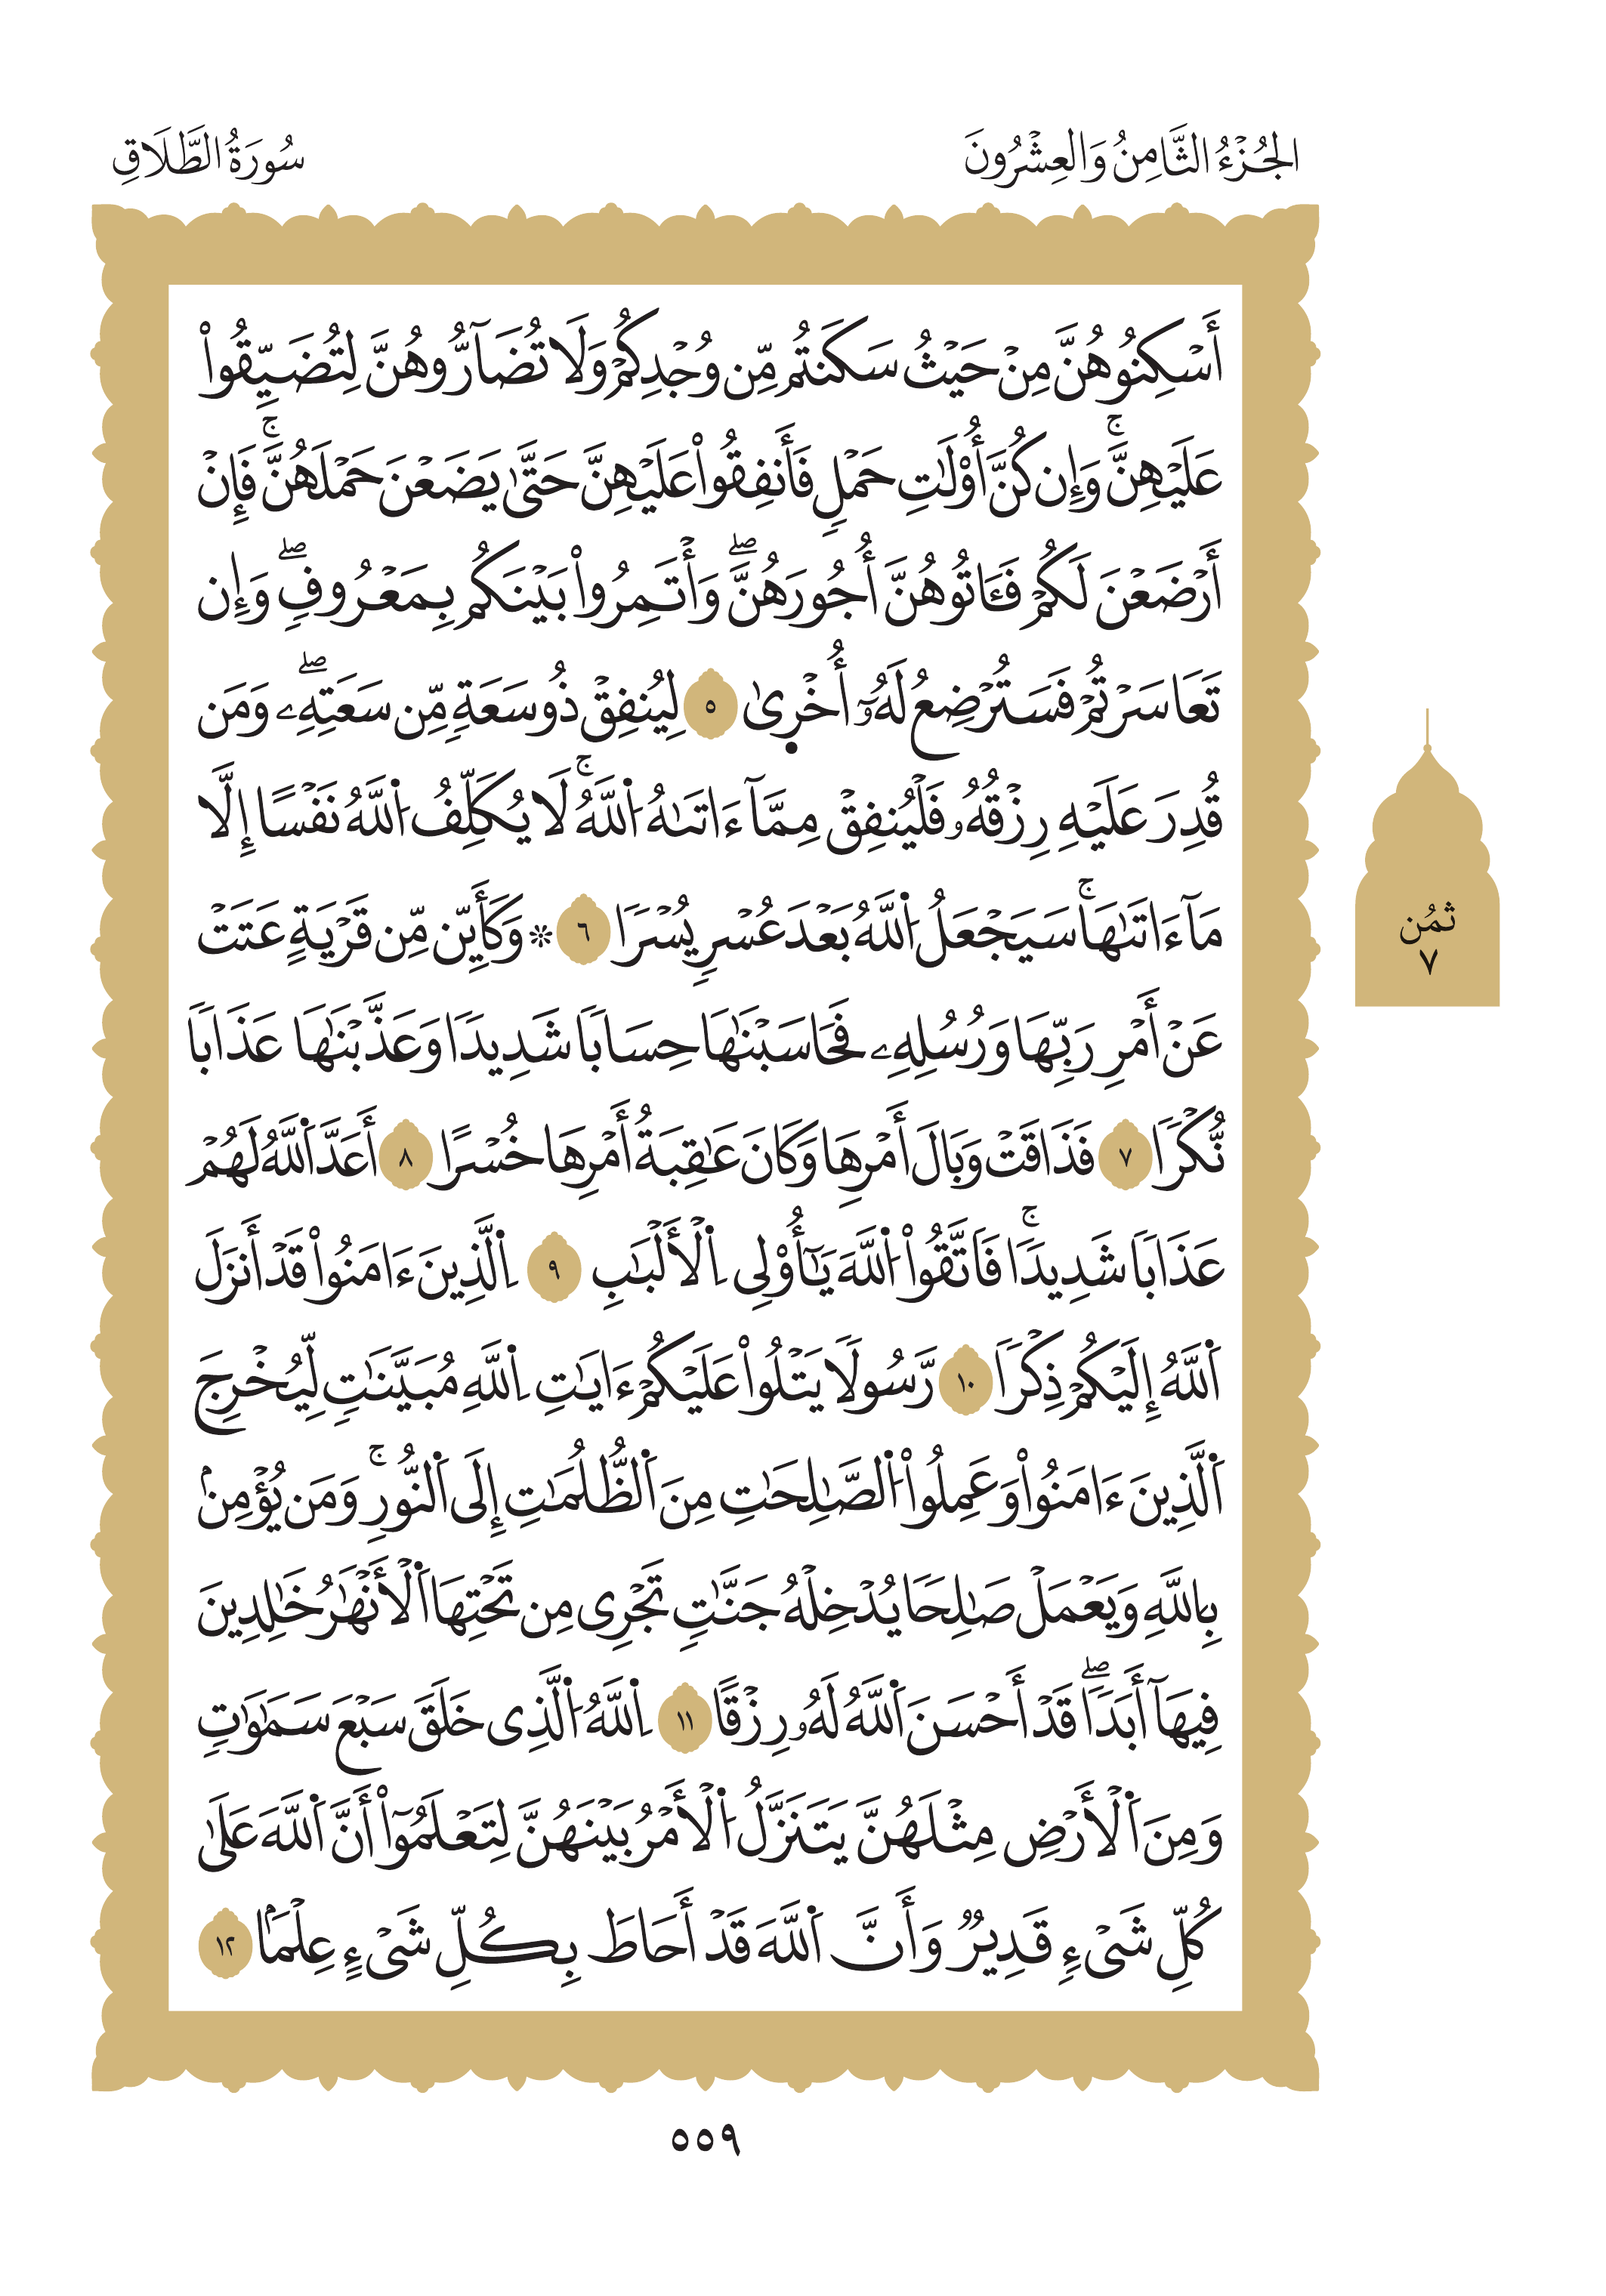 الجُزْءُ الثَّامِنُ وَالعِشْرُونَ
سُورَةُ الطَّلَاقِ
أَسْكِنُوهُنَّ مِنْ حَيْثُ سَكَنتُم مِّن وُجْدِكُمْ وَلَا تُضَآرُّوهُنَّ لِتُضَيِّقُواْ
عَلَيْهِنَّۚ وَإِن كُنَّ أُوْلَٰتِ حَمْلٖ فَأَنفِقُواْ عَلَيْهِنَّ حَتَّىٰ يَضَعْنَ حَمْلَهُنَّۚ فَإِنْ
أَرْضَعْنَ لَكُمْ فَـَٔاتُوهُنَّ أُجُورَهُنَّۖ وَأْتَمِرُواْ بَيْنَكُم بِمَعْرُوفٖۖ وَإِن
تَعَاسَرْتُمْ فَسَتُرْضِعُ لَهُۥٓ أُخْر۪ىٰ ٥ لِيُنفِقْ ذُو سَعَةٖ مِّن سَعَتِهِۦۖ وَمَن
قُدِرَ عَلَيْهِ رِزْقُهُۥ فَلْيُنفِقْ مِمَّآ ءَاتَىٰهُ اُ۬للَّهُۚ لَا يُكَلِّفُ اُ۬للَّهُ نَفْسًا إِلَّا
مَآ ءَاتَىٰهَاۚ سَيَجْعَلُ اُ۬للَّهُ بَعْدَ عُسْرٖ يُسْرٗا ٦ ۞ وَكَأَيِّن مِّن قَرْيَةٍ عَتَتْ
عَنْ أَمْرِ رَبِّهَا وَرُسُلِهِۦ فَحَاسَبْنَٰهَا حِسَابٗا شَدِيدٗا وَعَذَّبْنَٰهَا عَذَابٗا
نُّكْرٗا ٧ فَذَاقَتْ وَبَالَ أَمْرِهَا وَكَانَ عَٰقِبَةُ أَمْرِهَا خُسْرًا ٨ أَعَدَّ اَ۬للَّهُ لَهُمْ
عَذَابٗا شَدِيدٗاۚ فَاتَّقُواْ اُ۬للَّهَ يَٰٓأُوْلِى اِ۬لْأَلْبَٰبِ ٩ اِ۬لَّذِينَ ءَامَنُواْ قَدْ أَنزَلَ
اَ۬للَّهُ إِلَيْكُمْ ذِكْرٗا ١٠ رَّسُولٗا يَتْلُواْ عَلَيْكُمْ ءَايَٰتِ اِ۬للَّهِ مُبَيَّنَٰتٖ لِّيُخْرِجَ
اَ۬لَّذِينَ ءَامَنُواْ وَعَمِلُواْ اُ۬لصَّٰلِحَٰتِ مِنَ اَ۬لظُّلُمَٰتِ إِلَى اَ۬لنُّورِۚ وَمَن يُؤْمِنۢ
بِاللَّهِ وَيَعْمَلْ صَٰلِحٗا يُدْخِلْهُ جَنَّٰتٖ تَجْرِى مِن تَحْتِهَا اَ۬لْأَنْهَٰرُ خَٰلِدِينَ
فِيهَآ أَبَدٗاۖ قَدْ أَحْسَنَ اَ۬للَّهُ لَهُۥ رِزْقًا ١١ اِ۬للَّهُ اُ۬لَّذِى خَلَقَ سَبْعَ سَمَٰوَٰتٖ
وَمِنَ اَ۬لْأَرْضِ مِثْلَهُنَّ يَتَنَزَّلُ اُ۬لْأَمْرُ بَيْنَهُنَّ لِتَعْلَمُوٓاْ أَنَّ اَ۬للَّهَ عَلَىٰ
كُلِّ شَىْءٖ قَدِيرٞ وَأَنَّ اَ۬للَّهَ قَدْ أَحَاطَ بِكُلِّ شَىْءٍ عِلْمَۢا ١٢
ثُمُن
٧
٥٥٩